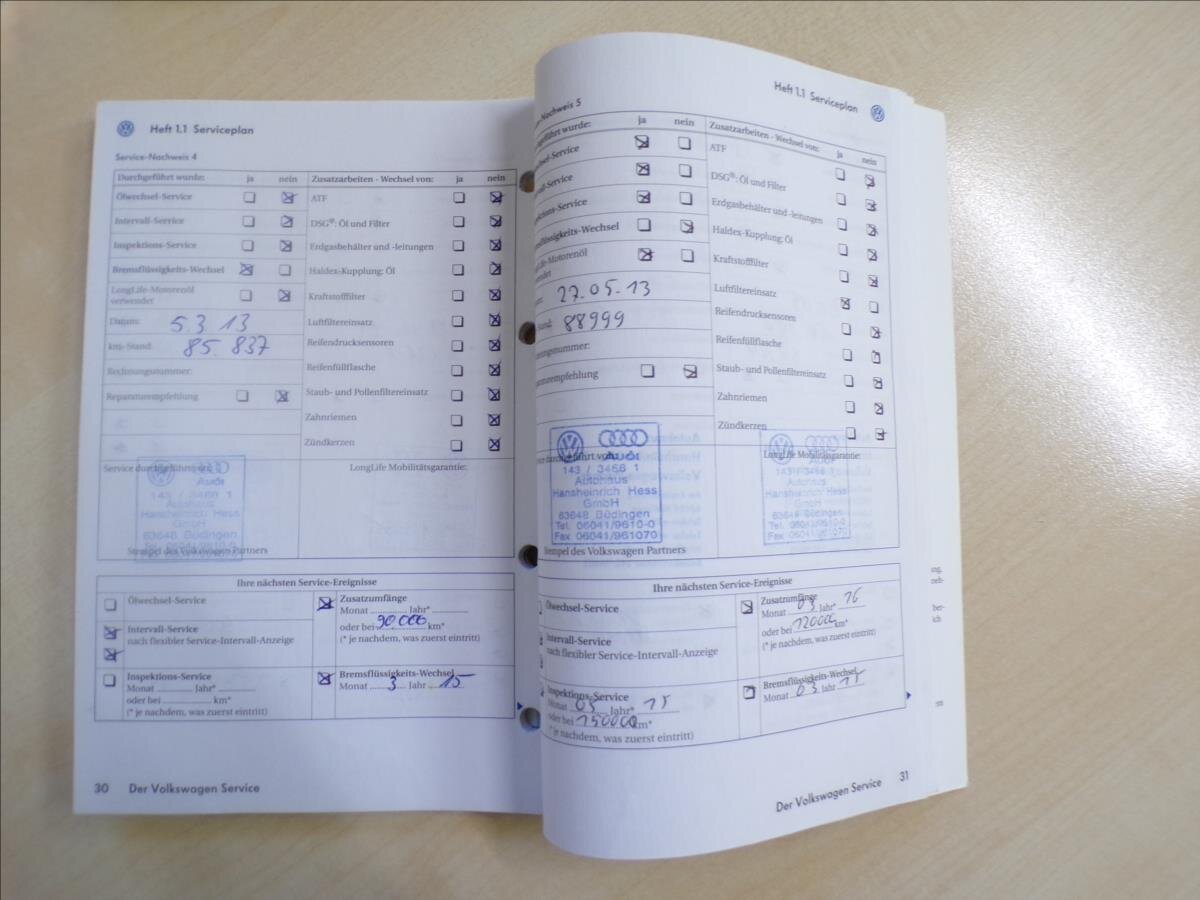 Heft 1.1 Serviceplan
Service-Nachweis 4
Durchgeführt wurde: ja nein
Ölwechsel-Service
Intervall-Service
Inspektions-Service
Bremsflüssigkeits-Wechsel
LongLife-Motorenöl
verwendet
Datum: 5.3.13
km-Stand: 85.837
Rechnungsnummer:
Reparaturempfehlung
Zusatzarbeiten - Wechsel von: ja nein
ATF
DSG®: Öl und Filter
Erdgasbehälter und -leitungen
Haldex-Kupplung: Öl
Kraftstofffilter
Luftfiltereinsatz
Reifendrucksensoren
Reifenfüllflasche
Staub- und Pollenfiltereinsatz
Zahnriemen
Zündkerzen
Service durchgeführt
Audi
143 / 3466 1
Autohaus
Hansheinrich Hess
GmbH
63648 Büdingen
Tel. 06041/9610-0
Stempel des Volkswagen Partners
LongLife Mobilitätsgarantie:
Ihre nächsten Service-Ereignisse
Ölwechsel-Service
Intervall-Service
nach flexibler Service-Intervall-Anzeige
Inspektions-Service
Monat Jahr*
oder bei km*
(* je nachdem, was zuerst eintritt)
Zusatzumfänge
Monat Jahr*
oder bei 90000 km*
(* je nachdem, was zuerst eintritt)
Bremsflüssigkeits-Wechsel
Monat 3 Jahr 15
30 Der Volkswagen Service
Heft 1.1 Serviceplan
Nachweis 5
geführt wurde: ja nein
chsel-Service
vall-Service
ktions-Service
flüssigkeits-Wechsel
Life-Motorenöl
27.05.13
Stand: 88999
nungsnummer:
raturempfehlung
Zusatzarbeiten - Wechsel von: ja nein
ATF
DSG®: Öl und Filter
Erdgasbehälter und -leitungen
Haldex-Kupplung: Öl
Kraftstofffilter
Luftfiltereinsatz
Reifendrucksensoren
Reifenfüllflasche
Staub- und Pollenfiltereinsatz
Zahnriemen
Zündkerzen
durchgeführt von:
Audi
143 / 3466 1
Autohaus
Hansheinrich Hess
GmbH
63648 Büdingen
Tel. 06041/9610-0
Fax 06041/961070
Stempel des Volkswagen Partners
LongLife Mobilitätsgarantie:
Audi
143 / 3466 1
Autohaus
Hansheinrich Hess
GmbH
63648 Büdingen
Tel. 06041/9610-0
Fax 06041/961070
Ihre nächsten Service-Ereignisse
Ölwechsel-Service
Intervall-Service
nach flexibler Service-Intervall-Anzeige
Inspektions-Service
Monat 05 Jahr* 15
oder bei 150000 km*
(* je nachdem, was zuerst eintritt)
Zusatzumfänge
Monat 03 Jahr* 16
oder bei 120000 km*
(* je nachdem, was zuerst eintritt)
Bremsflüssigkeits-Wechsel
Monat 03 Jahr 15
Der Volkswagen Service 31